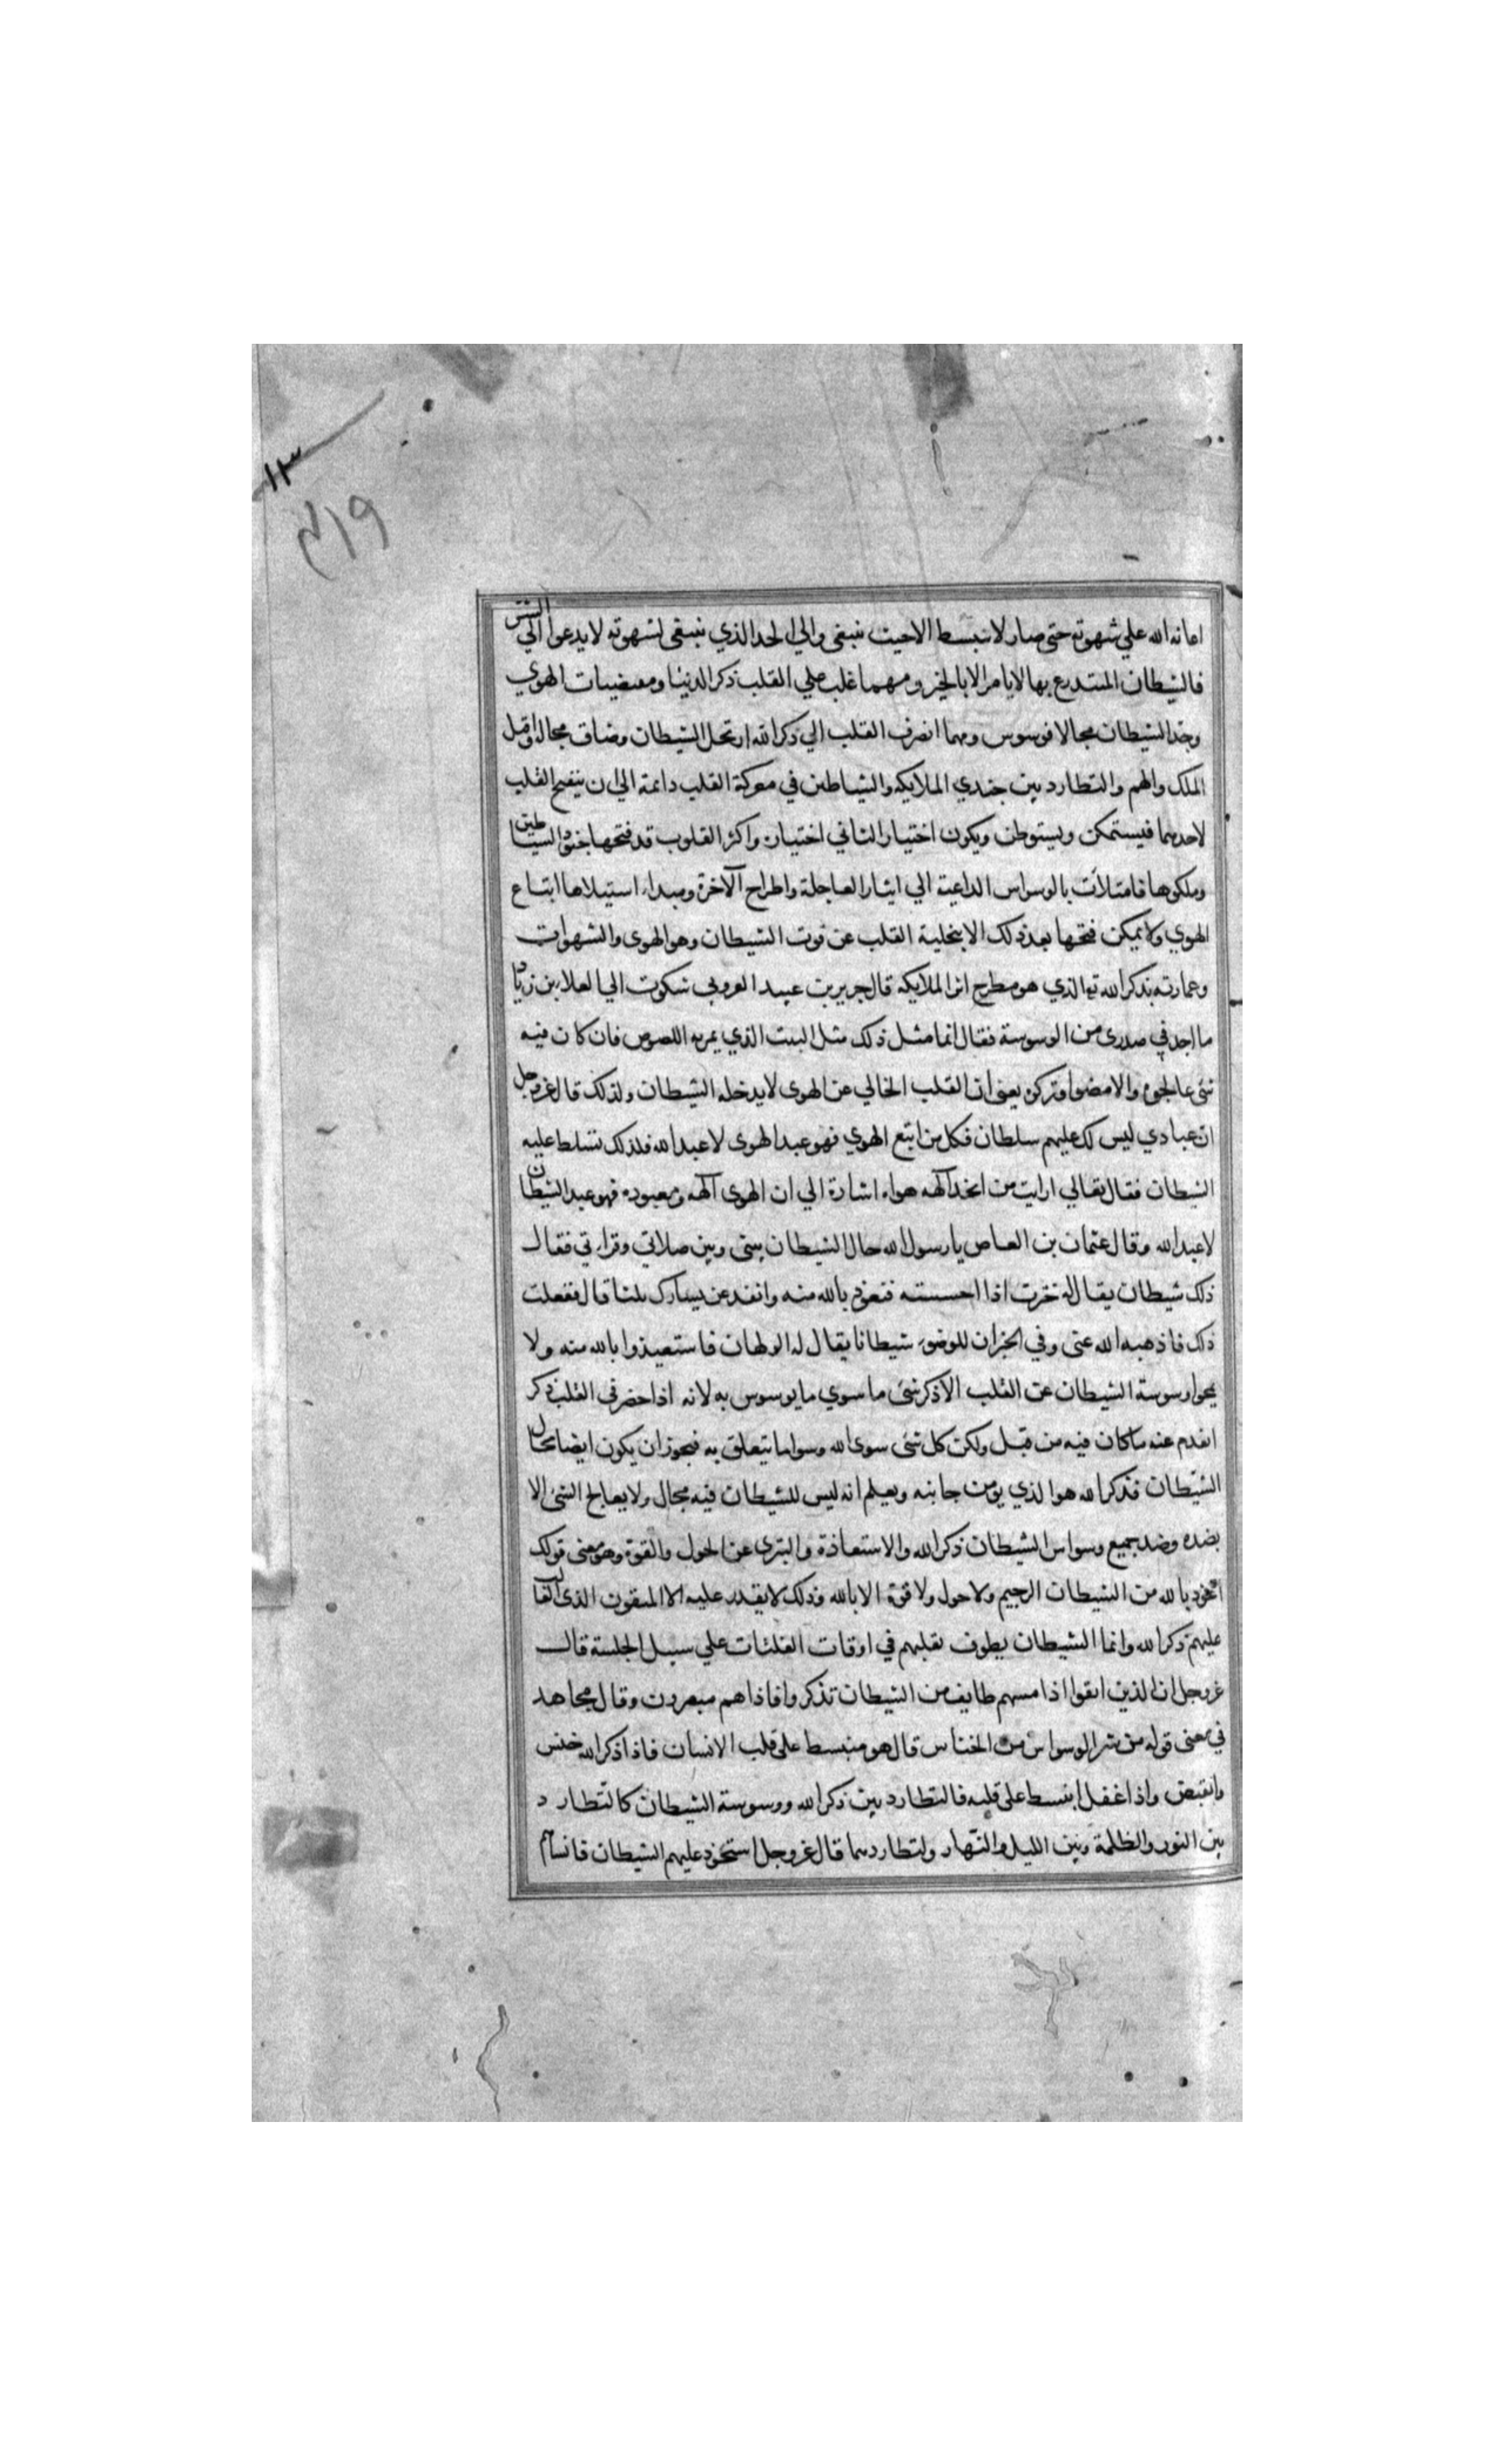 ١١٣
٢١٩
اعانه الله علي شهوته حتى صار لا تنبسط الا حيث ينبغي والي الحد الذي ينبغي لشهوته لا يدعوا الي الشر
فالشيطان المتدرع بها لا يامر الا بالخير ومهما غلب علي القلب ذكر الدنيا ومقتضيات الهوي
وجد الشيطان مجالا فوسوس ومهما انصرف القلب الي ذكر الله ارتحل الشيطان وضاق مجاله واقبل
الملك والهم والتطارد بين جندي الملايكه والشياطين في معركة القلب دائمة الي ان ينفتح القلب
لاحدهما فيستمكن ويستوطن ويكون اختيار الثاني اختيار واكثر القلوب قد فتحها جنود الشياطين
وملكوها فامتلأت بالوسواس الداعية الي ايثار العاجلة واطراح الآخرة ومبداء استيلاها اتباع
الهوي ولا يمكن فتحها بعد ذلك الا بتخلية القلب عن قوت الشيطان وهو الهوى والشهوات
وعمارته بذكر الله تع الذي هو مطرح اثر الملايكه قال جرير بن عبيد العروبي شكوت الي العلاء بن زياد
ما اجد في صدرى من الوسوسة فقال انما مثل ذلك مثل البيت الذي يمر به اللصوص فان كان فيه
شئ عالجوه والا مضوا وتركن يعني ان القلب الخالي عن الهوى لا يدخله الشيطان ولذلك قال عز وجل
ان عبادي ليس لك عليهم سلطان فكل من اتبع الهوي فهو عبد الهوى لا عبد الله فلذلك تسلط عليه
الشيطان فقال تعالي ارايت من اتخذ آلهه هواه اشارة الي ان الهوى آلهه ومعبوده فهو عبد الشيطان
لا عبد الله وقال عثمان بن العاص يا رسول الله حال الشيطان بيني وبين صلاتي وقراءتي فقال
ذلك شيطان يقال له خنزب اذا احسسته فتعوذ بالله منه واتفد عن يسارك ثلثا قال ففعلت
ذلك فاذهبه الله عني وفي الخبر ان للوضوء شيطانا يقال له الولهان فاستعيذوا بالله منه ولا
يمحوا وسوسة الشيطان عن القلب الا ذكر شئ ما سوي ما يوسوس به لانه اذا حضر في القلب ذكر
انعدم عنه ما كان فيه من قبل ولكن كل شئ سوى الله وسوا ما يتعلق به فيجوز ان يكون ايضا مجال
الشيطان فذكر الله هو الذي يؤمن جانبه ويعلم انه ليس للشيطان فيه مجال ولا يعالج الشئ الا
بضده وضد جميع وسواس الشيطان ذكر الله والاستعاذة والتبرى عن الحول والقوة وهو معنى قولك
اعوذ بالله من الشيطان الرجيم ولا حول ولا قوة الا بالله وذلك لا يقدر عليه الا المتقون الذي الغالب
عليهم ذكر الله وانما الشيطان يطوف بقلبهم في اوقات الفلتات علي سبيل الخلسة قال
عز وجل ان الذين اتقوا اذا مسهم طايف من الشيطان تذكروا فاذاهم مبصرون وقال مجاهد
في معنى قوله من شر الوسواس الخناس قال هو منبسط على قلب الانسان فاذا ذكر الله خنس
وانقبض واذا غفل انبسط على قلبه فالتطارد بين ذكر الله ووسوسة الشيطان كالتطارد
بين النور والظلمة وبين الليل والنهار ولتطاردهما قال عز وجل استحوذ عليهم الشيطان فانساهم